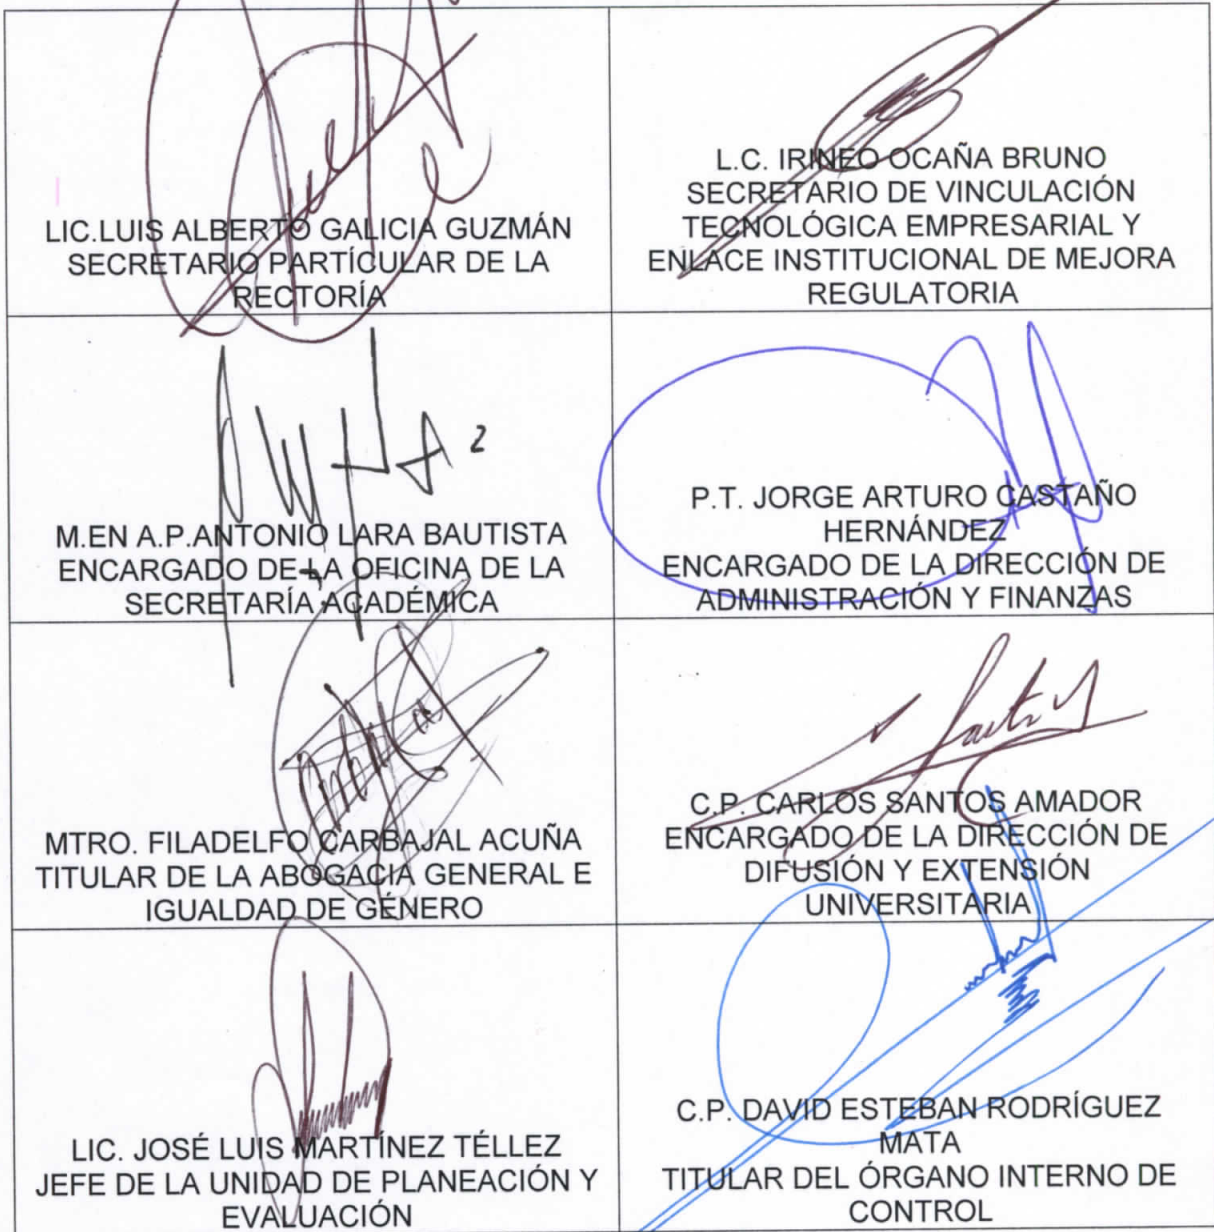 LIC.LUIS ALBERTO GALICIA GUZMÁN
SECRETARIO PARTÍCULAR DE LA
RECTORÍA
L.C. IRINEO OCAÑA BRUNO
SECRETARIO DE VINCULACIÓN
TECNOLÓGICA EMPRESARIAL Y
ENLACE INSTITUCIONAL DE MEJORA
REGULATORIA
M.EN A.P.ANTONIO LARA BAUTISTA
ENCARGADO DE LA OFICINA DE LA
SECRETARÍA ACADÉMICA
P.T. JORGE ARTURO CASTAÑO
HERNÁNDEZ
ENCARGADO DE LA DIRECCIÓN DE
ADMINISTRACIÓN Y FINANZAS
MTRO. FILADELFO CARBAJAL ACUÑA
TITULAR DE LA ABOGACÍA GENERAL E
IGUALDAD DE GÉNERO
C.P. CARLOS SANTOS AMADOR
ENCARGADO DE LA DIRECCIÓN DE
DIFUSIÓN Y EXTENSIÓN
UNIVERSITARIA
LIC. JOSÉ LUIS MARTÍNEZ TÉLLEZ
JEFE DE LA UNIDAD DE PLANEACIÓN Y
EVALUACIÓN
C.P. DAVID ESTEBAN RODRÍGUEZ
MATA
TITULAR DEL ÓRGANO INTERNO DE
CONTROL